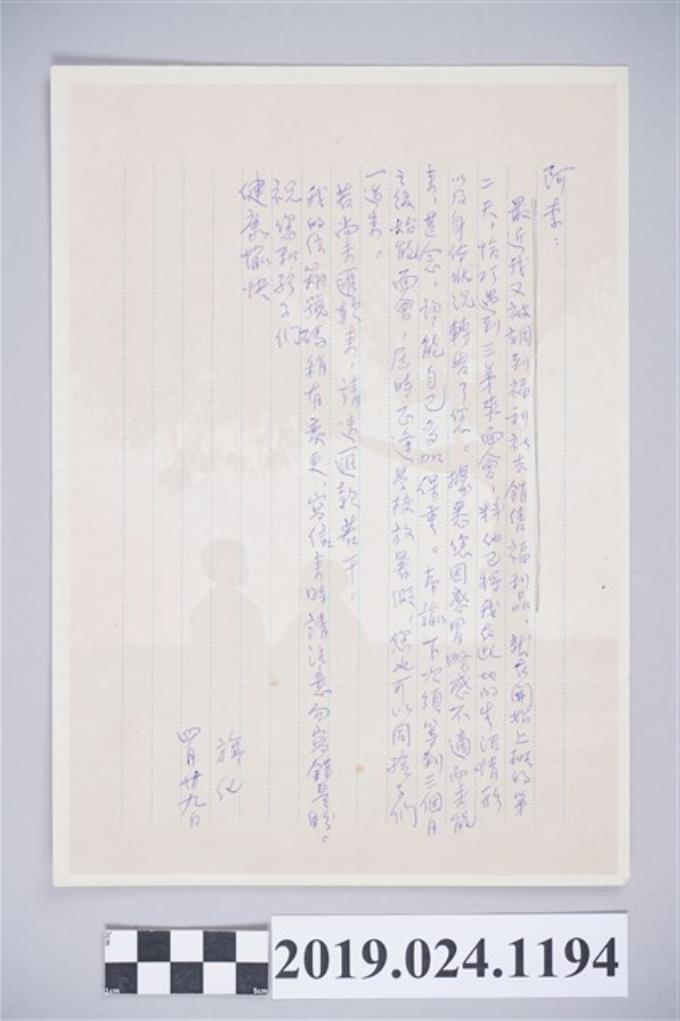 阿李:
最近我又被調到福利社去銷售福利品，就在開始上班的第
二天，恰巧遇到三弟來面會，料他已將我在此地的生活情形
以及身份狀況轉告了您。據悉您因感冒略感不適而未能
來，甚念，請能自己多加保重。奉諭下次須等到三個月
之後始能面會，屆時正逢學校放暑假，您也可以同孩子們
一道來。
若尚未匯款來，請速匯款若干。
我的信箱號碼稍有變更，寫信來時請注意勿寫錯是盼。
祝您和孩子們
健康愉快
旗化
四月廿九日
2019.024.1194
1cm
5cm